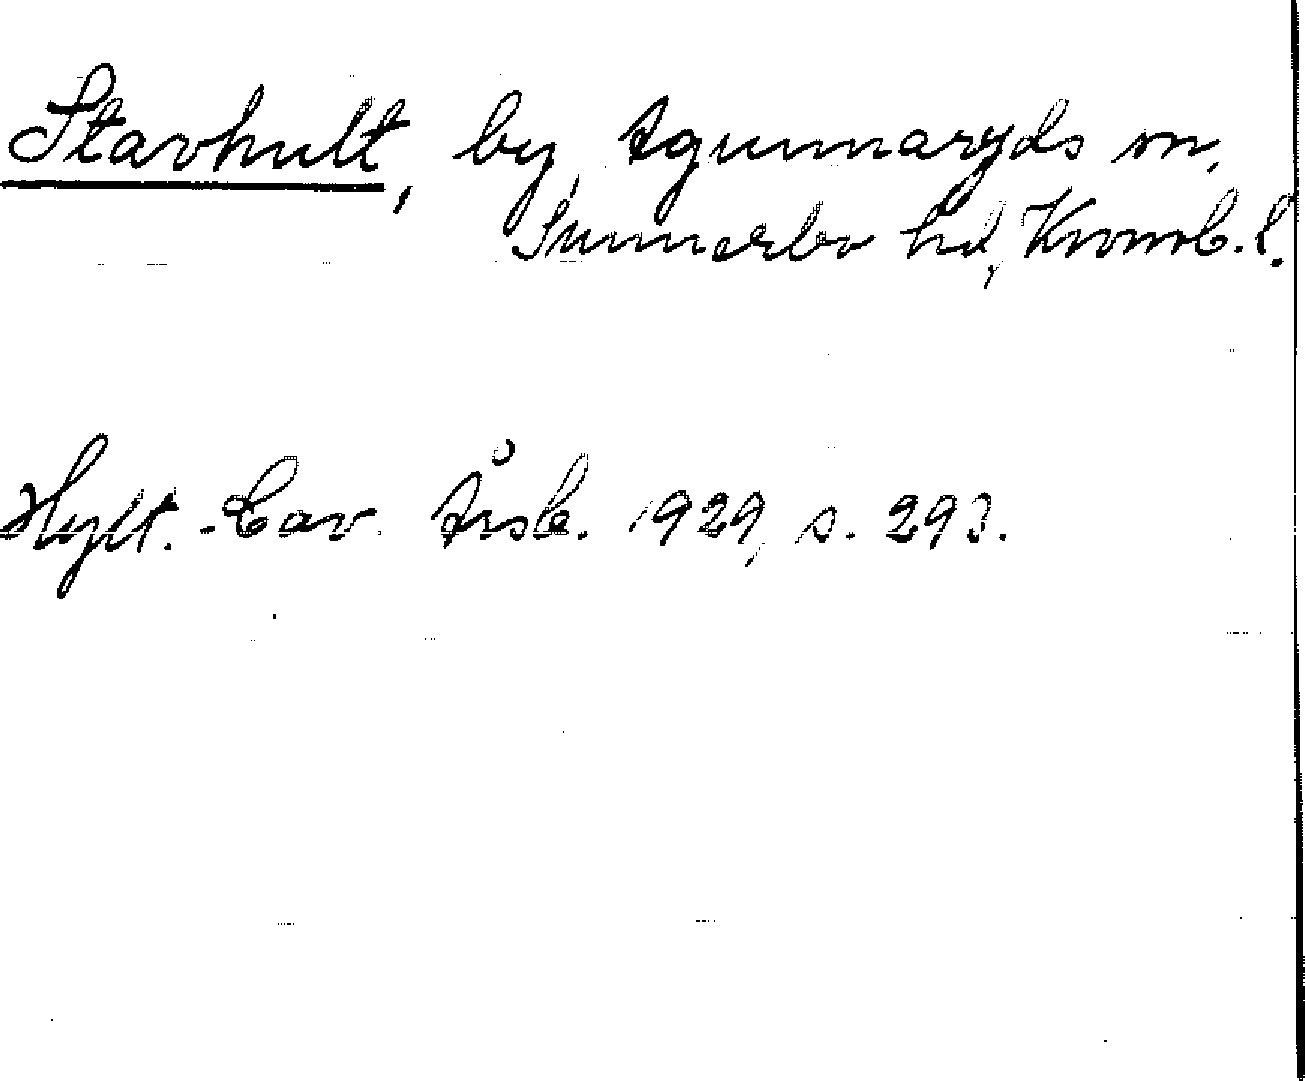 Stavhult, by, Agunnaryds sn,
Sunnerbo hd, Kronob. l.
Hylt.-Cav. Årsb. 1929, s. 293.